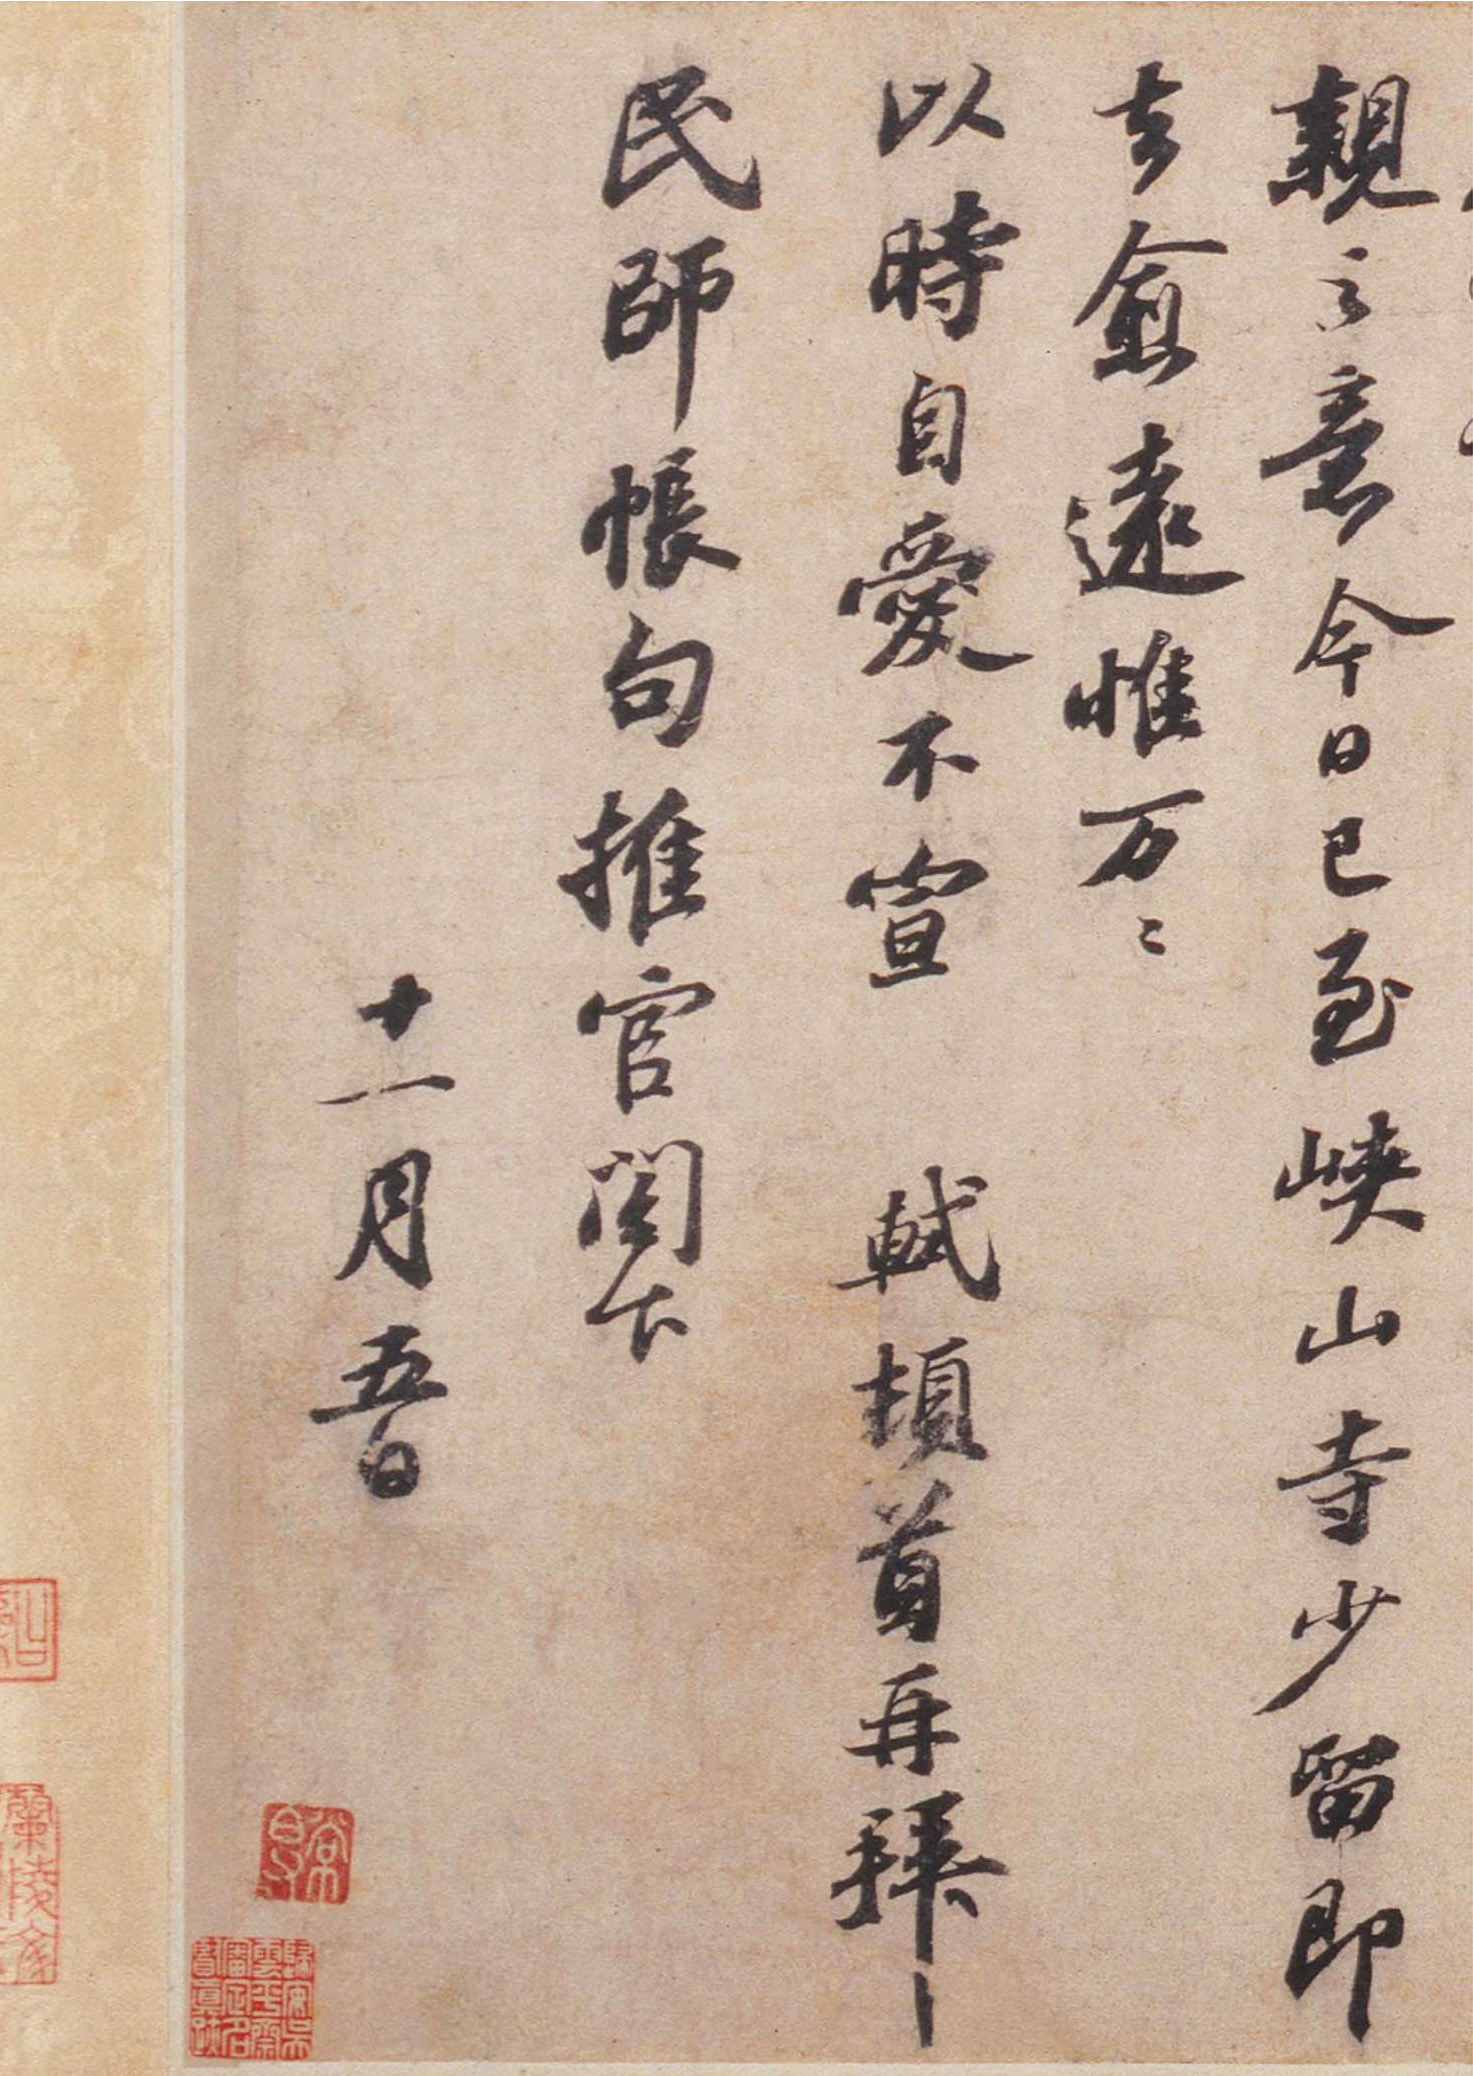 親之意今日已至峽山寺少留即
去愈遠惟万〻
以時自愛不宣　軾頓首再拜
民師帳句推官閣下
十一月五日